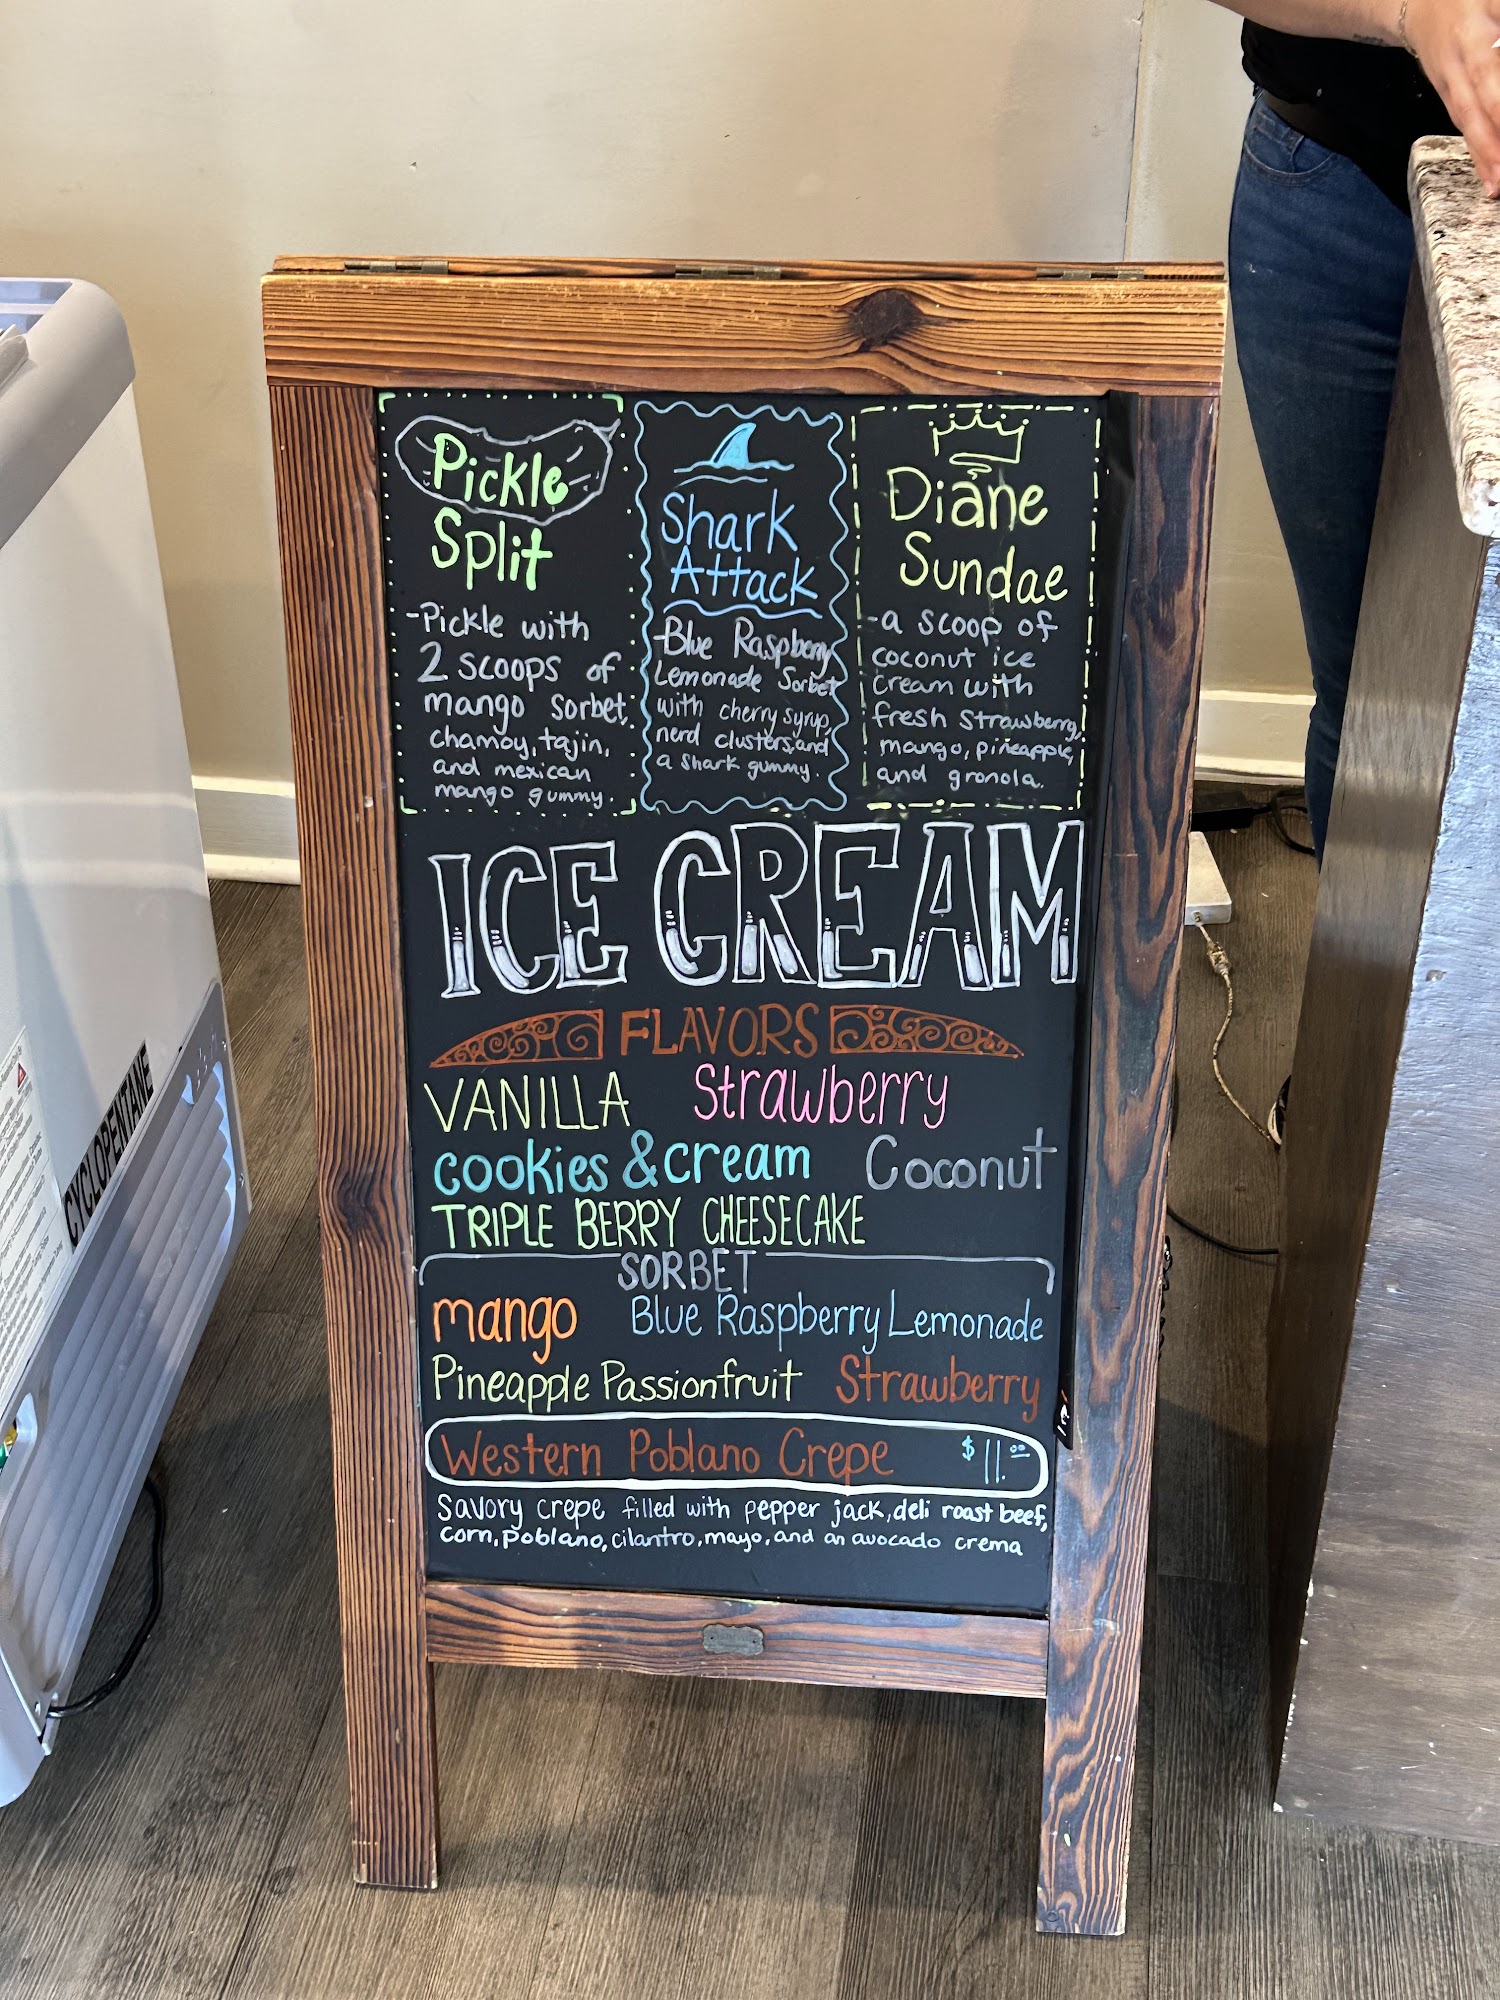 Pickle
Split
-Pickle with
2 scoops of
mango sorbet,
chamoy, tajin,
and mexican
mango gummy.
Shark
Attack
-Blue Raspberry
Lemonade Sorbet
with cherry syrup,
nerd clusters, and
a shark gummy.
Diane
Sundae
-a scoop of
coconut ice
cream with
fresh strawberry,
mango, pineapple,
and gronola.
ICE CREAM
FLAVORS
VANILLA Strawberry
cookies & cream Coconut
TRIPLE BERRY CHEESECAKE
SORBET
mango Blue Raspberry Lemonade
Pineapple Passionfruit Strawberry
Western Poblano Crepe $11.00
Savory crepe filled with pepper jack, deli roast beef,
corn, poblano, cilantro, mayo, and an avocado crema
CYCLOPENTANE